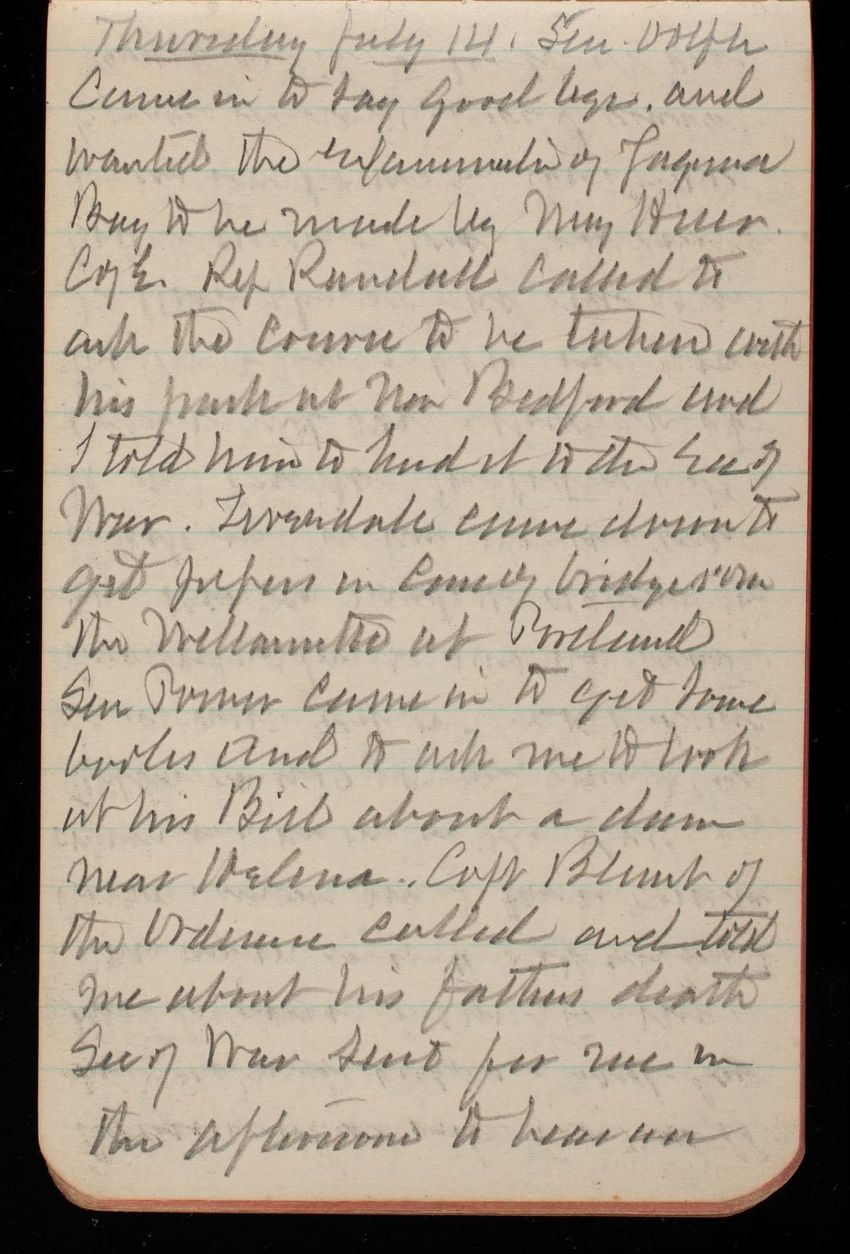 Thursday July 14. Sen. Dolph
Came in to say good bye. and
wanted the examination of Yaquina
Bay to be made by Maj Heuer.
C of E. Rep Randall called to
ask the course to be taken with
his park at New Bedford and
I told him to send it to the Sec of
War. Liverdale came down to
get papers in Case of bridge over
the Willamette at Portland
Sen Power came in to get some
books and to ask me to look
at his Bill about a dam
near Helena. Capt Blunt of
the Ordnance called and told
me about his fathers death
Sec of War sent for me in
the afternoon to hear an